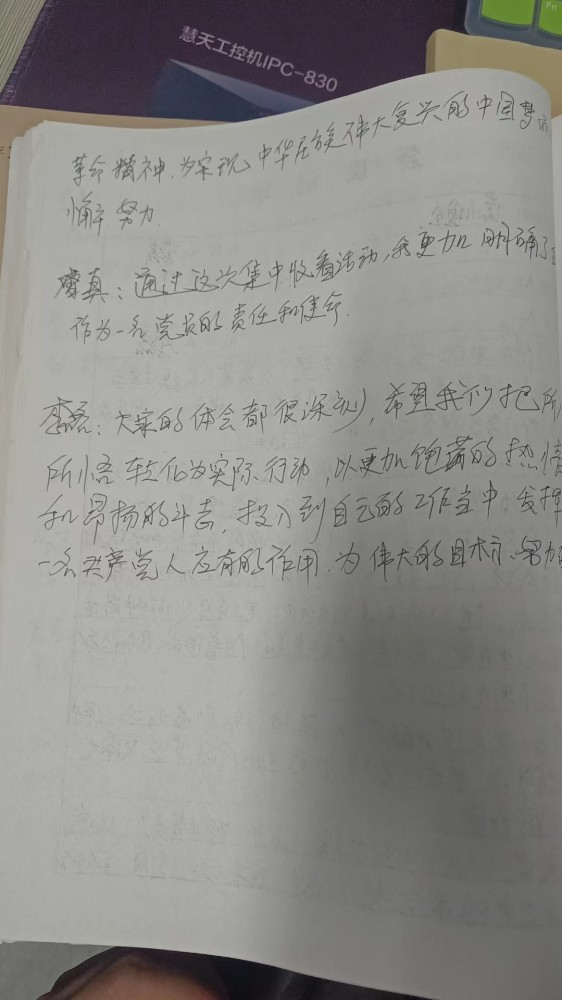 慧天工控机IPC-830
Fn
革命精神,为实现中华民族伟大复兴的中国梦而
懈努力.
真:通过这次集中收看活动,我更加明确了
作为一名党员的责任和使命.
李磊:大家的体会都很深刻,希望我们把所
所悟转化为实际行动,以更加饱满的热情
和昂扬的斗志,投入到自己的工作当中发挥
一名共产党人应有的作用.为伟大的目标努力